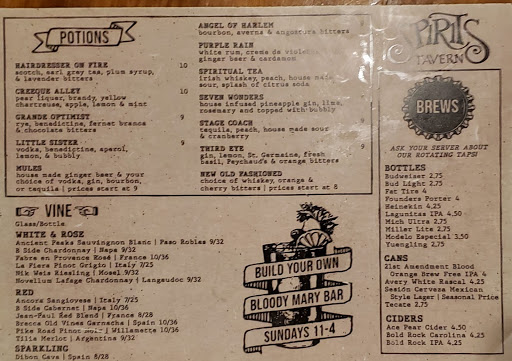 POTIONS
HAIRDRESSER ON FIRE 10
scotch, earl grey tea, plum syrup,
& lavender bitters
CREEQUE ALLEY 10
pear liquor, brandy, yellow
chartreuse, apple, lemon & mint
GRANDE OPTIMIST 9
rye, benedictine, fernet branca
& chocolate bitters
LITTLE SISTER 9
vodka, benedictine, aperol,
lemon, & bubbly
MULES
house made ginger beer & your
choice of vodka, gin, bourbon,
or tequila | prices start at 9
ANGEL OF HARLEM 9
bourbon, averna & angostura bitters
PURPLE RAIN
white rum, creme de violet
ginger beer & cardamon
SPIRITUAL TEA
irish whiskey, peach, house made
sour, splash of citrus soda
SEVEN WONDERS
house infused pineapple gin, lime,
rosemary and topped with bubbly
STAGE COACH 9
tequila, peach, house made sour
& cranberry
THIRD EYE 9
gin, lemon, St. Germaine, fresh
basil, Peychaud's & orange bitters
NEW OLD FASHIONED
choice of whiskey, orange &
cherry bitters | prices start 8
VINE
Glass/Bottle
WHITE & ROSE
Ancient Peaks Sauvingnon Blanc | Paso Robles 9/32
B Side Chardonnay | Napa 9/32
Fabre en Provence Rosé | France 10/36
La Fiera Pinot Grigio | Italy 7/25
Nik Weis Riesling | Mosel 9/32
Novellum Lafage Chardonnay | Langaudoc 9/32
RED
Ancora Sangiovese | Italy 7/25
B Side Cabernet | Napa 10/36
Jean-Paul Red Blend | France 8/28
Breca Old Vines Garnacha | Spain 10/36
Pike Road Pinot Noir | Willamette 10/36
Tilia Merlot | Argentina 9/32
SPARKLING
Dibon Cava | Spain 8/28
BUILD YOUR OWN
BLOODY MARY BAR
SUNDAYS 11-4
SPIRITS
TAVERN
BREWS
ASK YOUR SERVER ABOUT
OUR ROTATING TAPS!
BOTTLES
Budweiser 2.75
Bud Light 2.75
Fat Tire 4
Founders Porter 4
Heineken 4.25
Lagunitas IPA 4.50
Mich Ultra 2.75
Miller Lite 2.75
Modelo Especial 3.50
Yuengling 2.75
CANS
21st Amendment Blood
Orange Brew Free IPA 4
Avery White Rascal 4.25
Sesión Cerveza Mexican
Style Lager | Seasonal Price
Tecate 2.75
CIDERS
Ace Pear Cider 4.50
Bold Rock Original 4.25
Bold Rock IPA 4.25